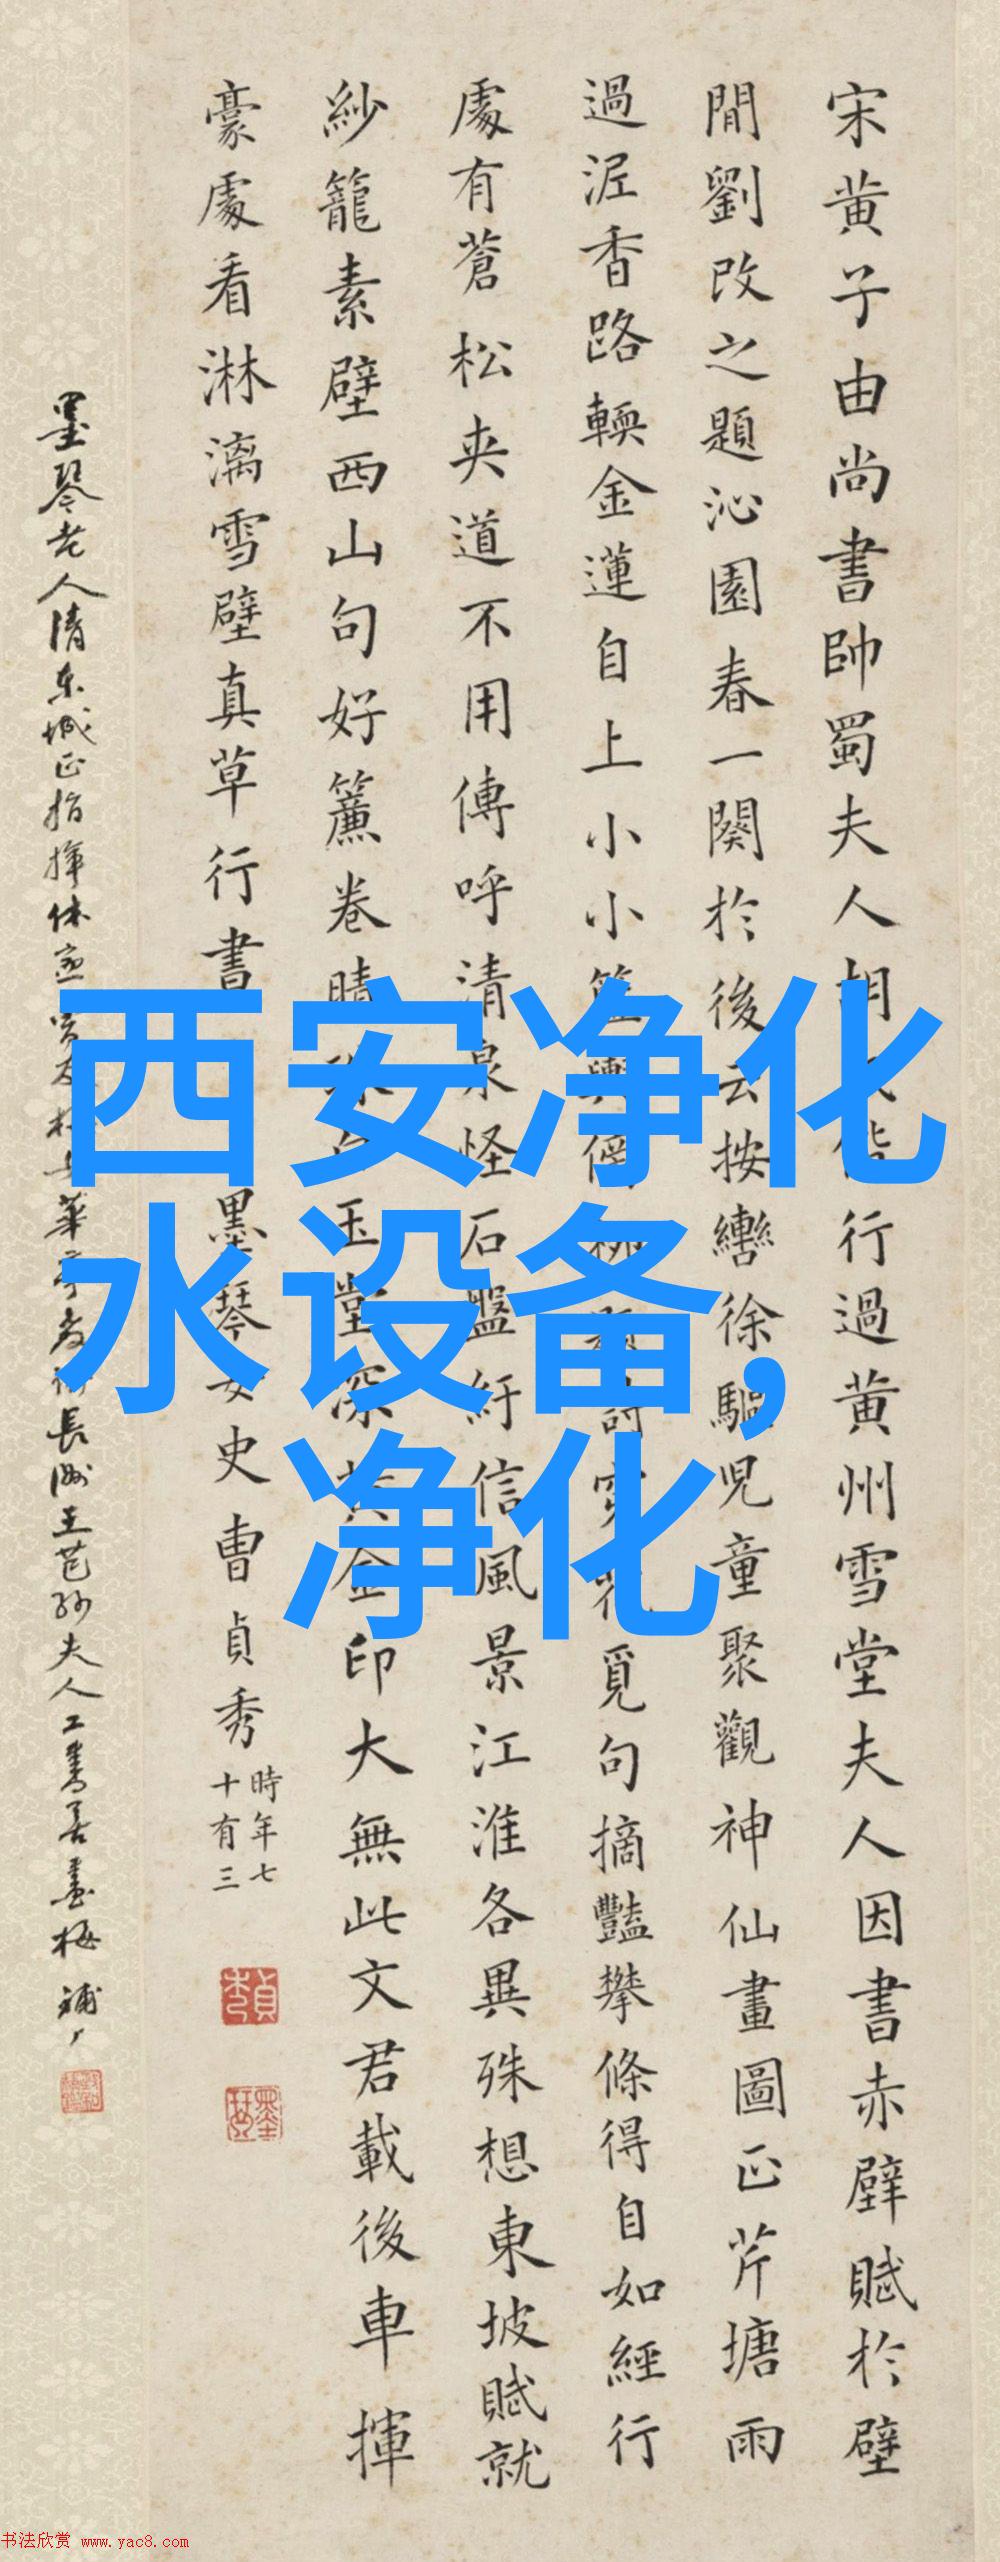 宋黄子由尚書帥蜀夫人胡
行過黄州雪堂夫人因書赤壁賦於壁
間劉改之題沁園春一闋於後云按轡徐驅兒童聚觀神仙畫圖正芹塘雨
過泥香路輭金蓮自上小小籃輿傍柳題詩穿花覓句摘豔攀條得自如經行
處有蒼松夾道不用傳呼清泉怪石盤紆信風景江淮各異殊想東坡賦就
紗籠素壁西山句好簾卷晴珠白玉堂深黄金印大無此文君載後車揮
豪處看淋漓雪壁真草行書
墨琴女史曹貞秀
時年七
十有三
墨琴老人清東城正指揮
長洲王芑孫夫人工書善畫梅
西安净化
水设备,
净化
书法欣赏 www.yac8.com